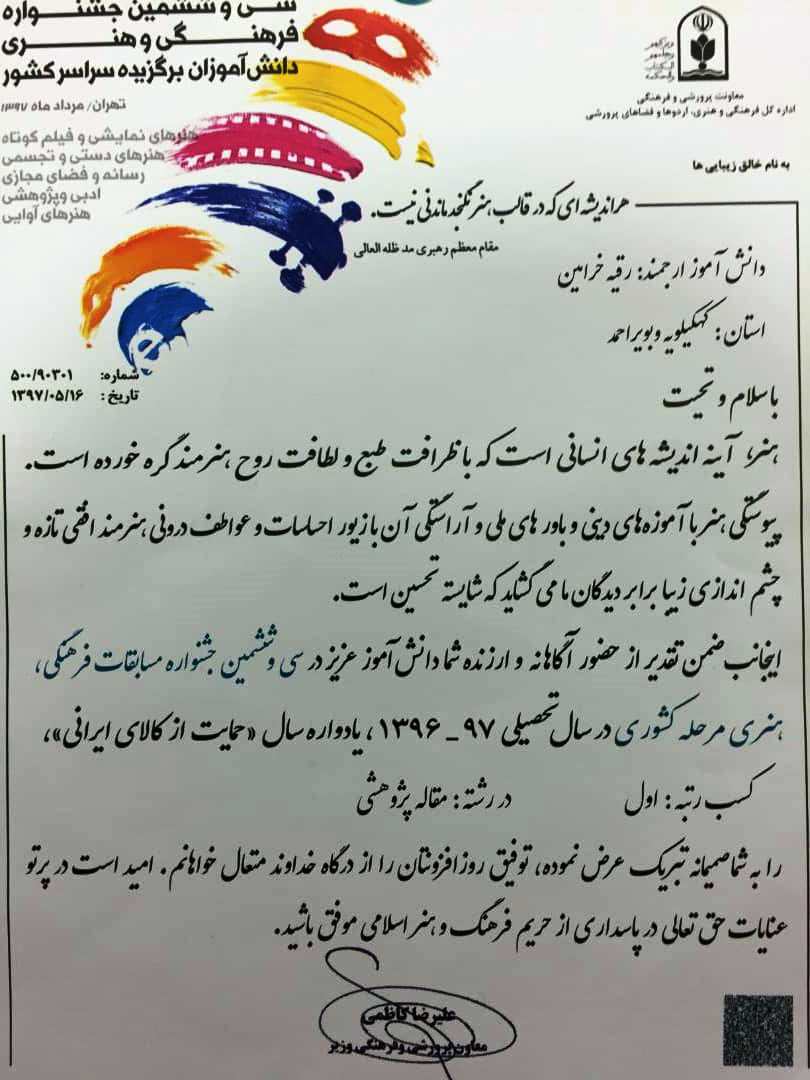 سی و ششمین جشنواره
فرهنگی و هنری
دانش‌آموزان برگزیده سراسر کشور
تهران/ مرداد ماه ۱۳۹۷
هنرهای نمایشی و فیلم کوتاه
هنرهای دستی و تجسمی
رسانه و فضای مجازی
ادبی و پژوهشی
هنرهای آوایی
معاونت پرورشی و فرهنگی
اداره کل فرهنگی و هنری، اردوها و فضاهای پرورشی
به نام خالق زیبایی ها
هر اندیشه ای که در قالب هنر نگنجد ماندنی نیست.
مقام معظم رهبری مد ظله العالی
دانش آموز ارجمند: رقیه خرامین
استان: کهکیلویه و بویراحمد
شماره: ۵۰۰/۹۰۳۰۱
تاریخ: ۱۳۹۷/۰۵/۱۶
با سلام و تحیت
هنر، آینه اندیشه های انسانی است که با ظرافت طبع و لطافت روح هنرمند گره خورده است.
پیوستگی هنر با آموزه های دینی و باور های ملی و آراستگی آن با زیور احساسات و عواطف درونی هنرمند افقی تازه و
چشم اندازی زیبا برابر دیدگان ما می گشاید که شایسته تحسین است.
اینجانب ضمن تقدیر از حضور آگاهانه و ارزنده شما دانش آموز عزیز در سی و ششمین جشنواره مسابقات فرهنگی،
هنری مرحله کشوری در سال تحصیلی ۹۷ _ ۱۳۹۶، یادواره سال «حمایت از کالای ایرانی»،
کسب رتبه: اول در رشته: مقاله پژوهشی
را به شما صمیمانه تبریک عرض نموده، توفیق روزافزونتان را از درگاه خداوند متعال خواهانم. امید است در پرتو
عنایات حق تعالی در پاسداری از حریم فرهنگ و هنر اسلامی موفق باشید.
علیرضا کاظمی
معاون پرورشی و فرهنگی وزیر